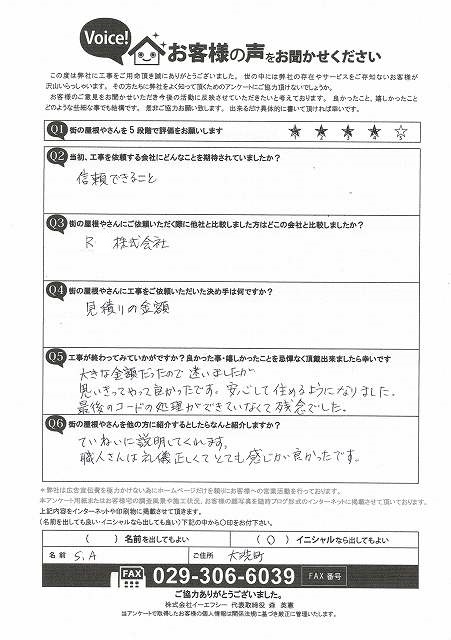 Voice!
お客様の声をお聞かせください
この度は弊社に工事をご用命頂き誠にありがとうございました。 世の中には弊社の存在やサービスをご存知ないお客様が
沢山いらっしゃいます。 その方たちに弊社をよく知って頂くためのアンケートにご協力頂けないでしょうか。
お客様のご意見をお聞かせいただき今後の活動に反映させていただきたいと考えております。 良かったこと、嬉しかったこと
どのような些細な事でも結構です。 是非ご協力お願い致します。 出来るだけ具体的に書いて頂ければ幸いです。
Q1 街の屋根やさんを5段階で評価をお願いします
Q2 当初、工事を依頼する会社にどんなことを期待されていましたか？
信頼できること
Q3 街の屋根やさんにご依頼いただく際に他社と比較しました方はどこの会社と比較しましたか？
R 株式会社
Q4 街の屋根やさんに工事をご依頼いただいた決め手は何ですか？
見積りの金額
Q5 工事が終わってみていかがですか？良かった事・嬉しかったことを忌憚なく頂戴出来ましたら幸いです
大きな金額だったので迷いましたが
思いきってやって良かったです。安心して住めるようになりました。
最後のコードの処理ができていなくて残念でした。
Q6 街の屋根やさんを他の方に紹介するとしたらなんと紹介しますか？
ていねいに説明してくれます。
職人さんは礼儀正しくてとても感じが良かったです。
＊弊社は広告宣伝費を極力かけない為にホームページだけを頼りにお客様への営業活動を行っております。
本アンケート用紙またはお客様宅の調査風景や施工状況、お客様の顔写真を随時ブログ形式のインターネットに掲載させて頂いております。
上記内容をインターネットや印刷物に掲載させて頂きます。
（名前を出しても良い・イニシャルなら出しても良い）下記の中から〇印をお付下さい。
（ ） 名前を出してもよい （ 〇 ） イニシャルなら出してもよい
名前 S.A ご住所 大洗町
FAX 029-306-6039 FAX 番号
ご協力ありがとうございました。
株式会社イーエフシー 代表取締役 森 英憲
当アンケートで取得したお客様の個人情報は関係法規に基づき厳正に管理いたします。